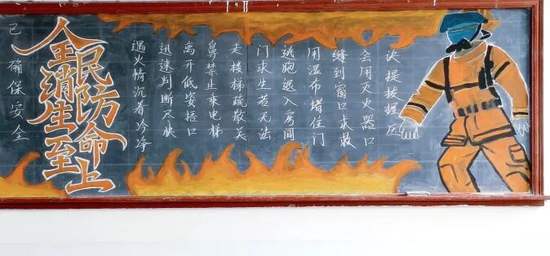 全民
消防
生命
至上
己确保安全
遇火情沉着冷静
迅速判断尽快
离开低姿捂口
鼻禁止乘电梯
走楼梯疏散关
门求生若无法
逃跑退入房间
用湿布堵住门
缝到窗口求救
会用灭火器口
诀提拔握压